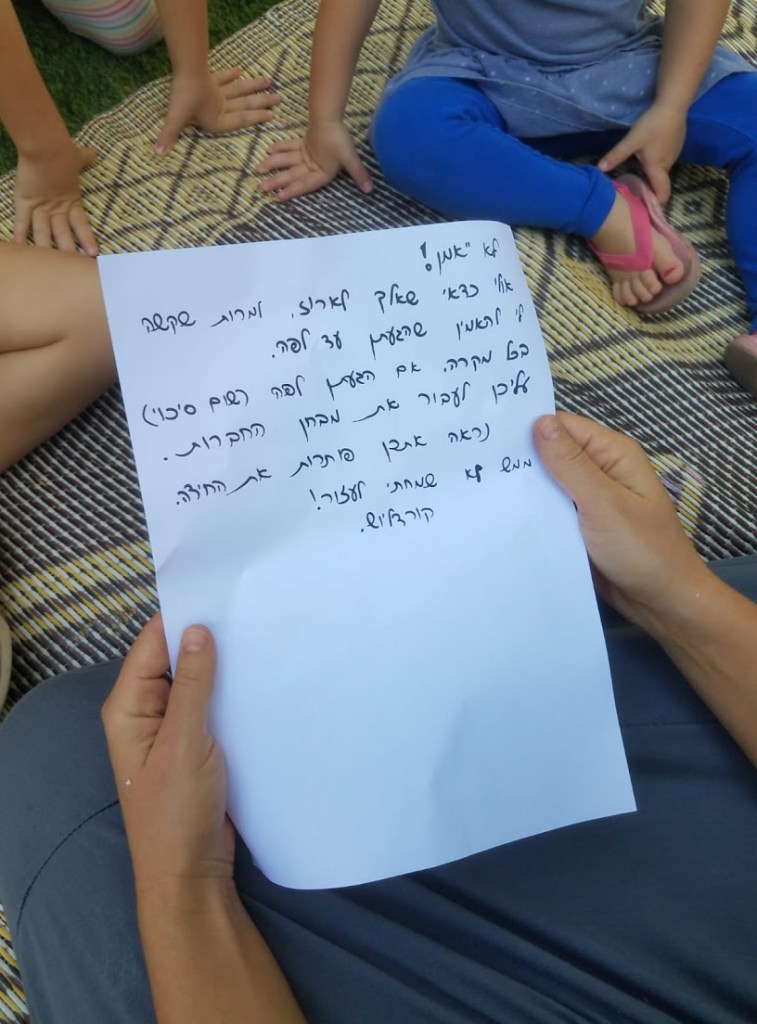 לא יאמן!
אולי כדאי שאלך לארוז. למרות שקשה
לי להאמין שהגעתן עד לפה.
בכל מקרה. אם הגעתן לפה (שום סיכוי)
עליכן לעבור את מבחן החברות.
נראה אתכן פותרות את החידה.
ממש לא שמחתי לעזור!
קורדליוש.